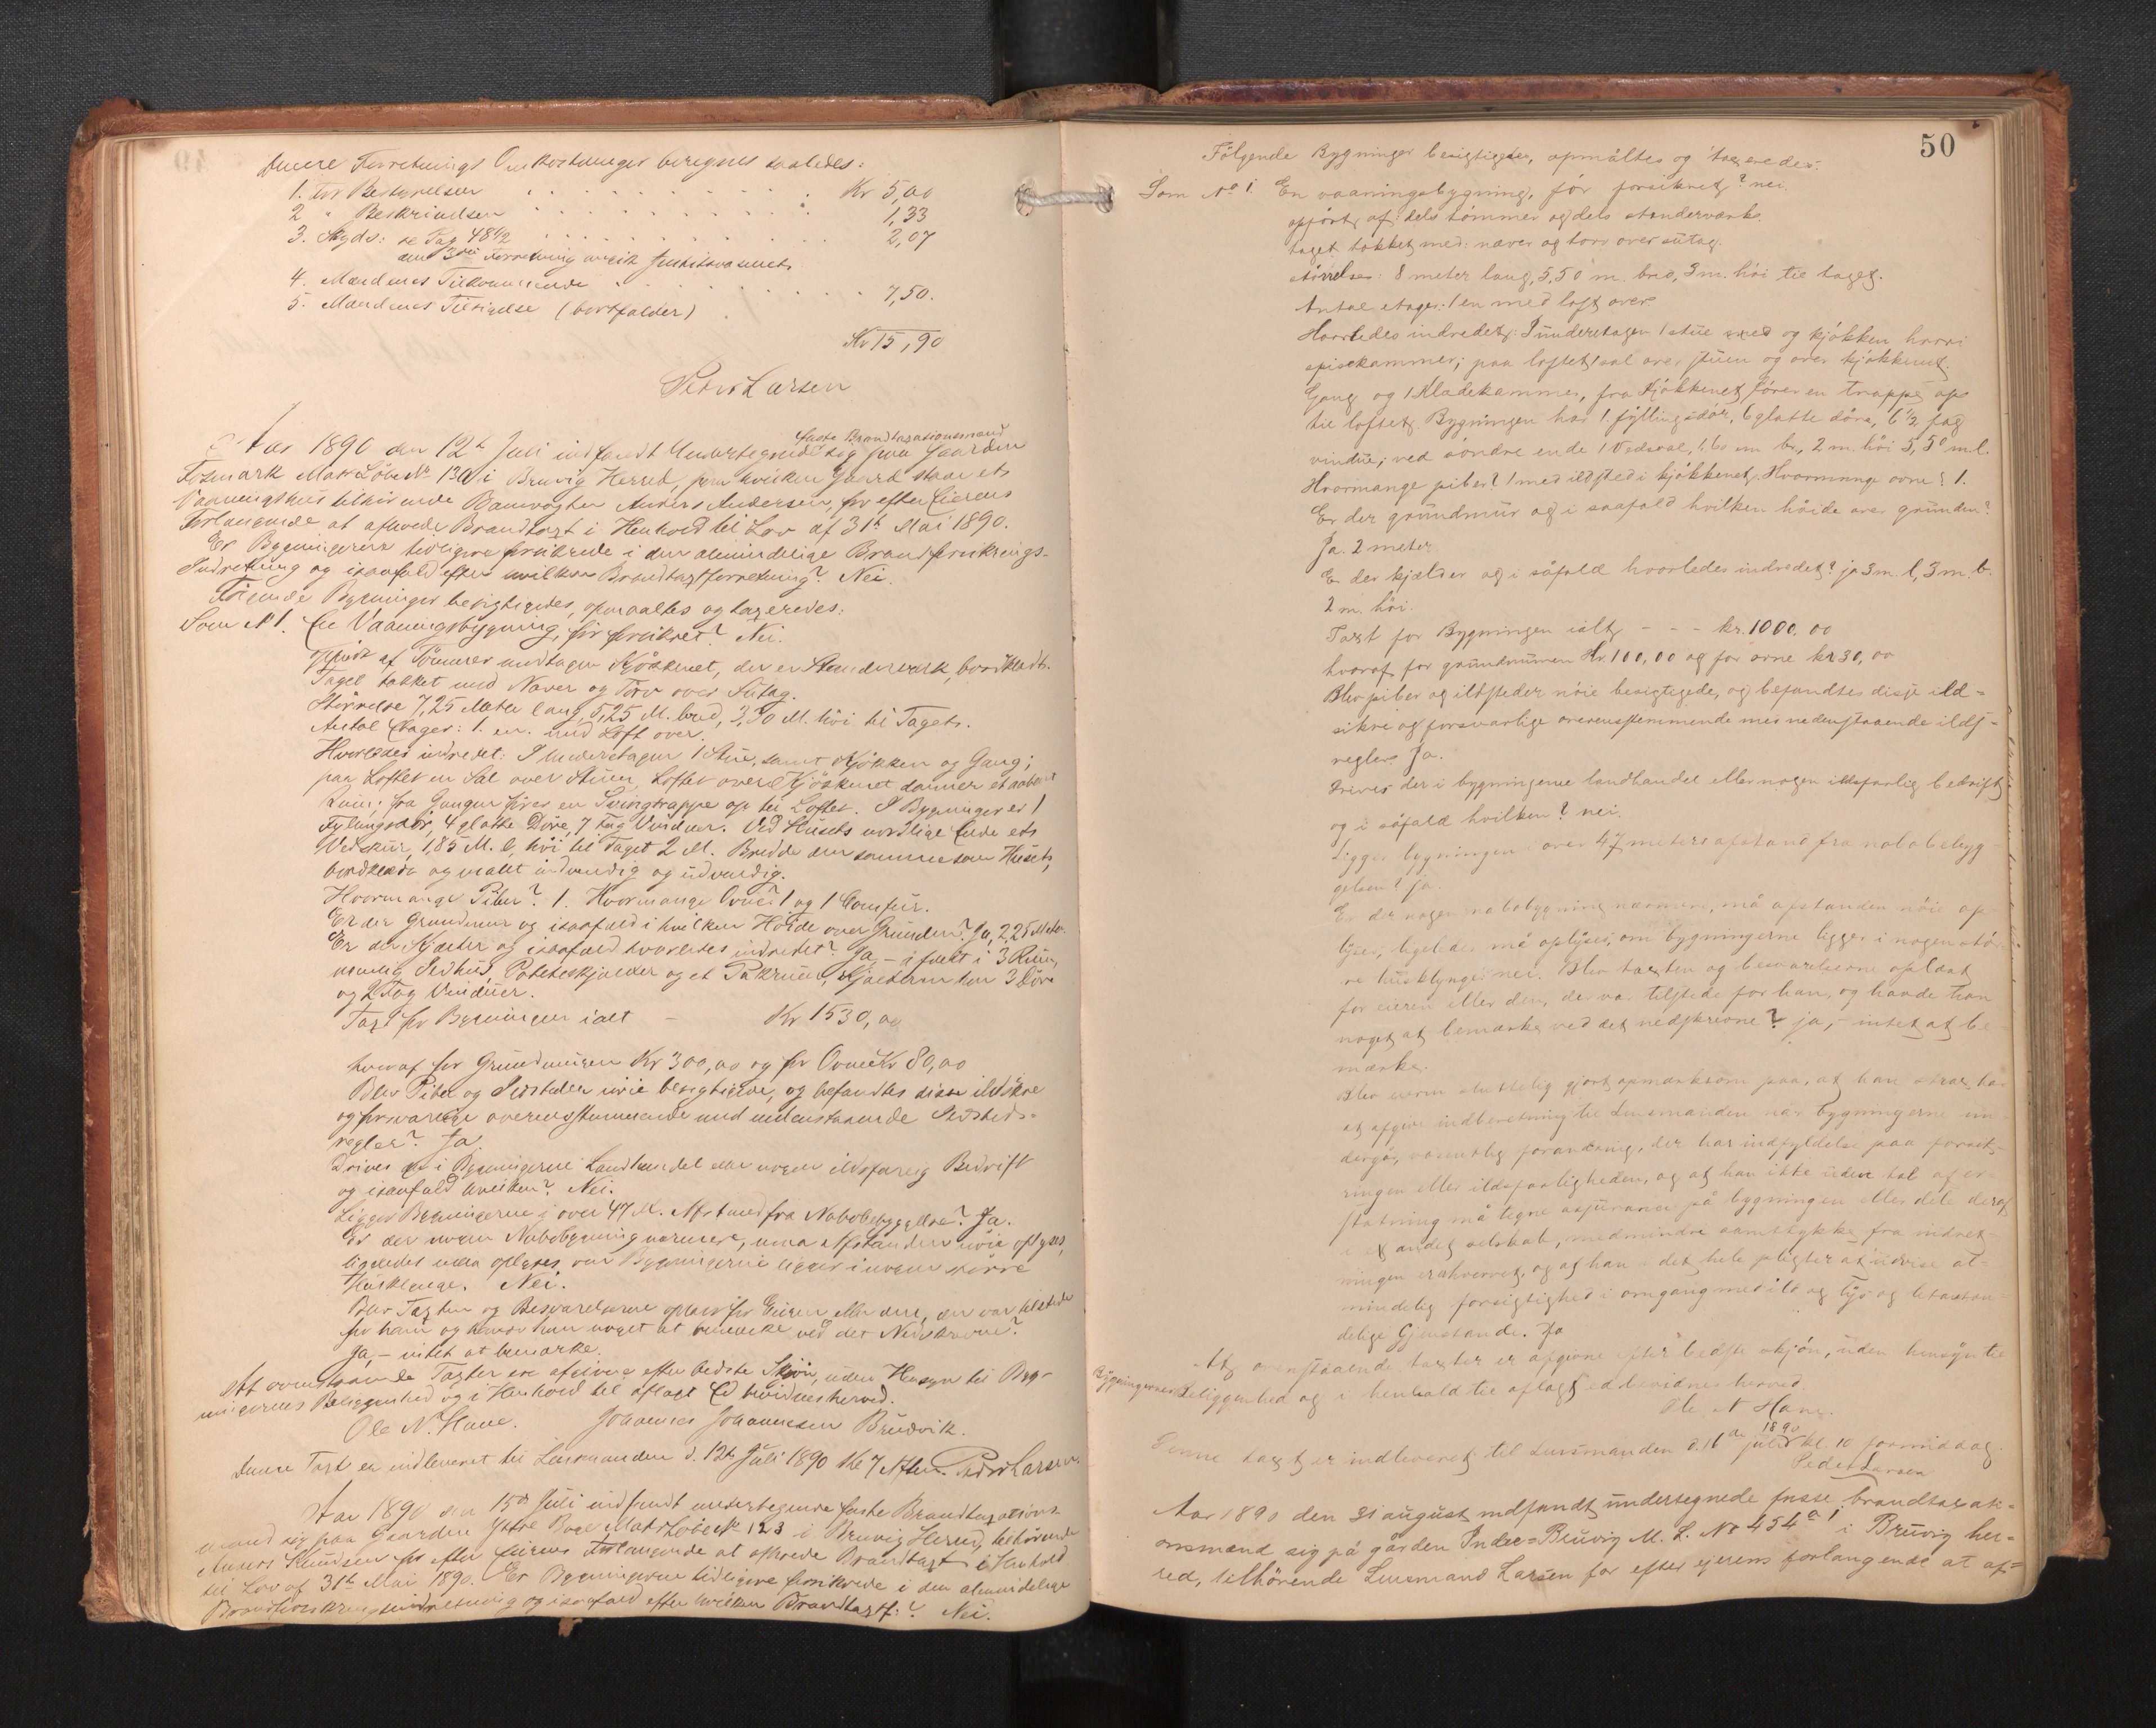 Denne Forretnings Omkostninger beregnes saaledes:
1. For Bestyrelsen . . . . . . . Kr 5,00
2 " Beskrivelsen . . . . . . . 1,33
3. Skyds: se Pag 48 1/2 . . . . . . 2,07
4. Mændenes Tilkommende . . . . . . 7,50.
5. Mændenes Tilsigelse (bortfalder)
Kr 15,90
Peder Larsen
Aar 1890 den 12te Juli indfandt Undertegnede faste Brandtaxationsmænd sig paa Gaarden
Fosmark Matr Løbe No 130 i Bruvig Herred, paa hvilken Gaard staar et
Vaaningshus tilhørende Banevogter Anders Andersen, for efter Eierens
Forlangende at afholde Brandtaxt i Henhold til Lov af 31te Mai 1890.
Er Bygningerne tidligere forsikrede i den almindelige Brandforsikrings-
Indretning og isaafald efter hvilken Brandtaxtforretning? Nei.
Følgende Bygninger besigtigedes, opmaaltes og taxeredes:
Som No 1. En Vaaningsbygning, før forsikret? Nei.
opført af Tømmer undtagen Kjøkkenet, der er Stenderverk, bordklædt.
Taget tækket med Næver og Torv over Sutag.
Størrelse 7,25 Meter lang, 5,25 M. bred, 3,30 M. høi til Taget.
Antal Etager: 1. en. med Loft over.
Hvorledes indredet: I Underetagen 1 Stue, samt Kjøkken og Gang;
paa Loftet en Sal over Stuen, Loftet over Kjøkkenet danner et aabent
Rum; fra Gangen fører en Svingtrappe op til Loftet. I Bygningen er 1
Fyllingsdør, 4 glatte Døre, 7 Fag Vinduer. Ved Husets nordlige Ende et
Vedskur, 1,85 M. l, høi til Taget 2 M. Bredde den samme som Husets,
bordklædt og malet indvendig og udvendig.
Hvormange Piber? 1. Hvormange Ovne? 1 og 1 Comfur.
Er der Grundmur og isaafald i hvilken Høide over Grunden? Ja, 2,25 Meter.
Er der Kjælder og isaafald hvorledes indredet? Ja, - afdelt i 3 Rum,
nemlig Ildhus, Poteteskjælder og et Pakrum, Kjælderen har 3 Døre
og 2 Fag Vinduer.
Taxt for Bygningen ialt - Kr 1530,00
hvoraf for Grundmuren Kr 300,00 og for Ovne Kr 80,00
Blev Piber og Ildsteder nøie besigtigede, og befandtes disse ildsikre
og forsvarlige overensstemmende med nedenstaaende Ildsteds-
regler? Ja.
Drives der i Bygningerne Landhandel eller nogen ildsfarlig Bedrift
og isaafald hvilken? Nei.
Ligger Bygningerne i over 47 M. Afstand fra Nabobebyggelse? Ja.
Er der nogen Nabobygning nærmere, maa Afstanden nøie oplyses,
ligeledes maa oplyses, om Bygningerne ligger i nogen større
Husklynge. Nei.
Blev Taxten og Besvarelserne oplæst for Eieren eller den, der var tilstede
for ham og havde han noget at bemærke ved det Nedskrevne?
Ja, - intet at bemærke.
At ovenstaaende Taxter er afgivne efter bedste Skjøn, uden Hensyn til Byg-
ningernes Beliggenhed og i Henhold til aflagt Ed bevidnes herved.
Ole N. Hane. Johannes Johannesen Bruvik.
Denne Taxt er indleveret til Lensmanden d. 12te Juli 1890 Kl 7 Aften. Peder Larsen.
Aar 1890 den 15de Juli indfandt undertegnede faste Brandtaxations-
mænd sig paa Gaarden Yttre Boge Matr Løbe No 123 i Bruvig Herred, tilhørende
Anders Knudsen for efter Eierens Forlangende at afholde Brandtaxt i Henhold
til Lov af 31te Mai 1890. Er Bygningerne tidligere forsikrede i den almindelige
Brandforsikringsindretning og isaafald efter hvilken Brandtaxtf.? Nei.
50
Følgende Bygninger besigtigtes, opmåltes og taxeredes:
Som No 1. En vaaningsbygning, før forsikret? nei.
opført af: dels tømmer og dels stenderværk.
taget tækket med: næver og torv over sutag.
størrelse: 8 meter lang, 5,50 m. bred, 3 m. høi til taget.
Antal etager: 1 en med loft over.
Hvorledes indredet: I underetagen 1 stue og kjøkken hvori
spisekammer; paa loftet 1 sal over stuen og over kjøkkenet
Gang og 1 Klædekammer, fra Kjøkkenet fører en trappe op
til loftet. Bygningen har 1 fyllingsdør, 6 glatte døre, 6 1/2 fag
vindue; ved søndre ende 1 Vedsval, 1,60 m br, 2 m. høi 5,50 m l.
Hvormange piber? 1 med ildsted i kjøkkenet. Hvormange ovne? 1.
Er der grundmur og i saafald hvilken høide over grunden?
Ja. 2 meter
Er der kjælder og i såfald hvorledes indredet? ja 3 m. l, 3 m. b.
2 m. høi.
Taxt for Bygningen ialt - - - kr. 1000,00
hvoraf for grundmuren Kr. 100,00 og for ovne kr 30,00
Blev piber og ildsteder nøie besigtigede, og befandtes disse ild-
sikre og forsvarlige overensstemmende med nedenstaaende ilds-
regler. Ja.
Drives der i bygningerne landhandel eller nogen ildsfarlig bedrift
og i såfald hvilken? nei.
Ligger bygningen i over 47 meters afstand fra nabobebyg-
gelsen? ja.
Er der nogen nabobygning nærmere, må afstanden nøie op-
lyses, ligeledes må oplyses, om bygningerne ligger i nogen stør-
re husklynge: nei. Blev taxten og besvarelserne oplæst
for eieren eller den, der var tilstede for han, og havde han
noget at bemærke ved det nedskrevne? ja, - intet at be-
mærke.
Blev eieren skriftlig gjort opmærksom paa, at han strax har
at afgive indberetning til Lensmanden naar bygningerne un-
dergår væsentlig forandring, der har indflydelse paa forsik-
ringen eller ildsfarligheden, og at han ikke uden tab af er-
statning må tegne assurance på bygningen eller dele deraf
i et andet selskab, medmindre samtykke fra indret-
ningen erhverves, og at han i det hele pligter at udvise al-
mindelig forsigtighed i omgang med ild og lys og letanten-
delige Gjenstande. Ja
At ovenstaaende taxter er afgivne efter bedste skjøn, uden hensyn til
Bygningernes Beliggenhed og i henhold til aflagt ed bevidnes herved.
Ole N Hane.
Denne taxt er indleveret til Lensmanden d. 16de juli 1890 kl 10 formiddag.
Peder Larsen
Aar 1890 den 31 august indfandt undertegnede faste brandtaxati-
onsmænd sig på gården Indre-Bruvig M. L. No 454 a 1 i Bruvig her-
red, tilhørende Lensmand Larsen for efter ejerens forlangende at af-